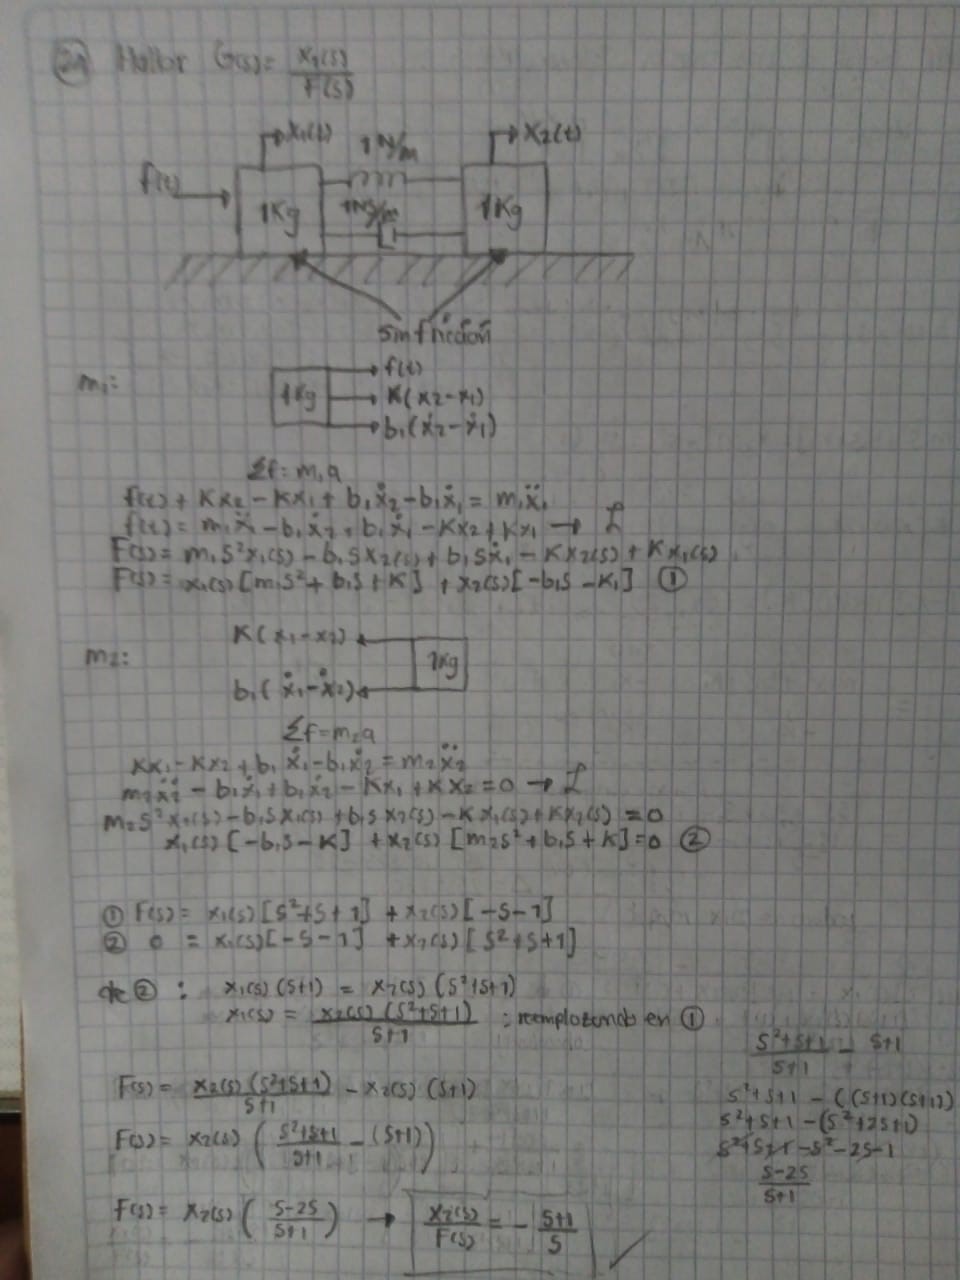 21 Hallar G(s)= X2(s)/F(s)
x1(t) 1 N/m x2(t)
f(t)
1Kg 1NS/m 1Kg
sin fricción
m1: 1Kg f(t)
K(x2-x1)
b1(ẋ2-ẋ1)
Σf= m1a
f(t) + Kx2 - Kx1 + b1ẋ2 - b1ẋ1 = m1ẍ1
f(t) = m1ẍ1 - b1ẋ2 + b1ẋ1 - Kx2 + Kx1 → ℒ
F(s) = m1S²x1(s) - b1Sx2(s) + b1Sẋ1 - Kx2(s) + Kx1(s)
F(s) = x1(s)[m1S² + b1S + K] + x2(s)[-b1S - K1] ①
m2: K(x1-x2) 1Kg
b1(ẋ1-ẋ2)
Σf=m2a
Kx1 - Kx2 + b1ẋ1 - b1ẋ2 = m2ẍ2
m2ẍ2 - b1ẋ1 + b1ẋ2 - Kx1 + Kx2 = 0 → ℒ
m2S²x2(s) - b1Sx1(s) + b1Sx2(s) - Kx1(s) + Kx2(s) = 0
x1(s)[-b1S - K] + x2(s)[m2S² + b1S + K] = 0 ②
① F(s) = x1(s)[S²+S+1] + x2(s)[-S-1]
② 0 = x1(s)[-S-1] + x2(s)[S²+S+1]
de ② : x1(s)(S+1) = x2(s)(S²+S+1)
x1(s) = x2(s)(S²+S+1)/S+1 : reemplazando en ①
F(s) = x2(s)(S²+S+1)/S+1 - x2(s)(S+1)
F(s) = x2(s)(S²+S+1/S+1 - (S+1))
F(s) = x2(s)(S-2S/S+1) → x2(s)/F(s) = - S+1/S
S²+S+1/S+1 - S+1
S²+S+1 - ((S+1)(S+1))
S²+S+1 - (S²+2S+1)
S²+S+1 - S² - 2S - 1
S-2S/S+1